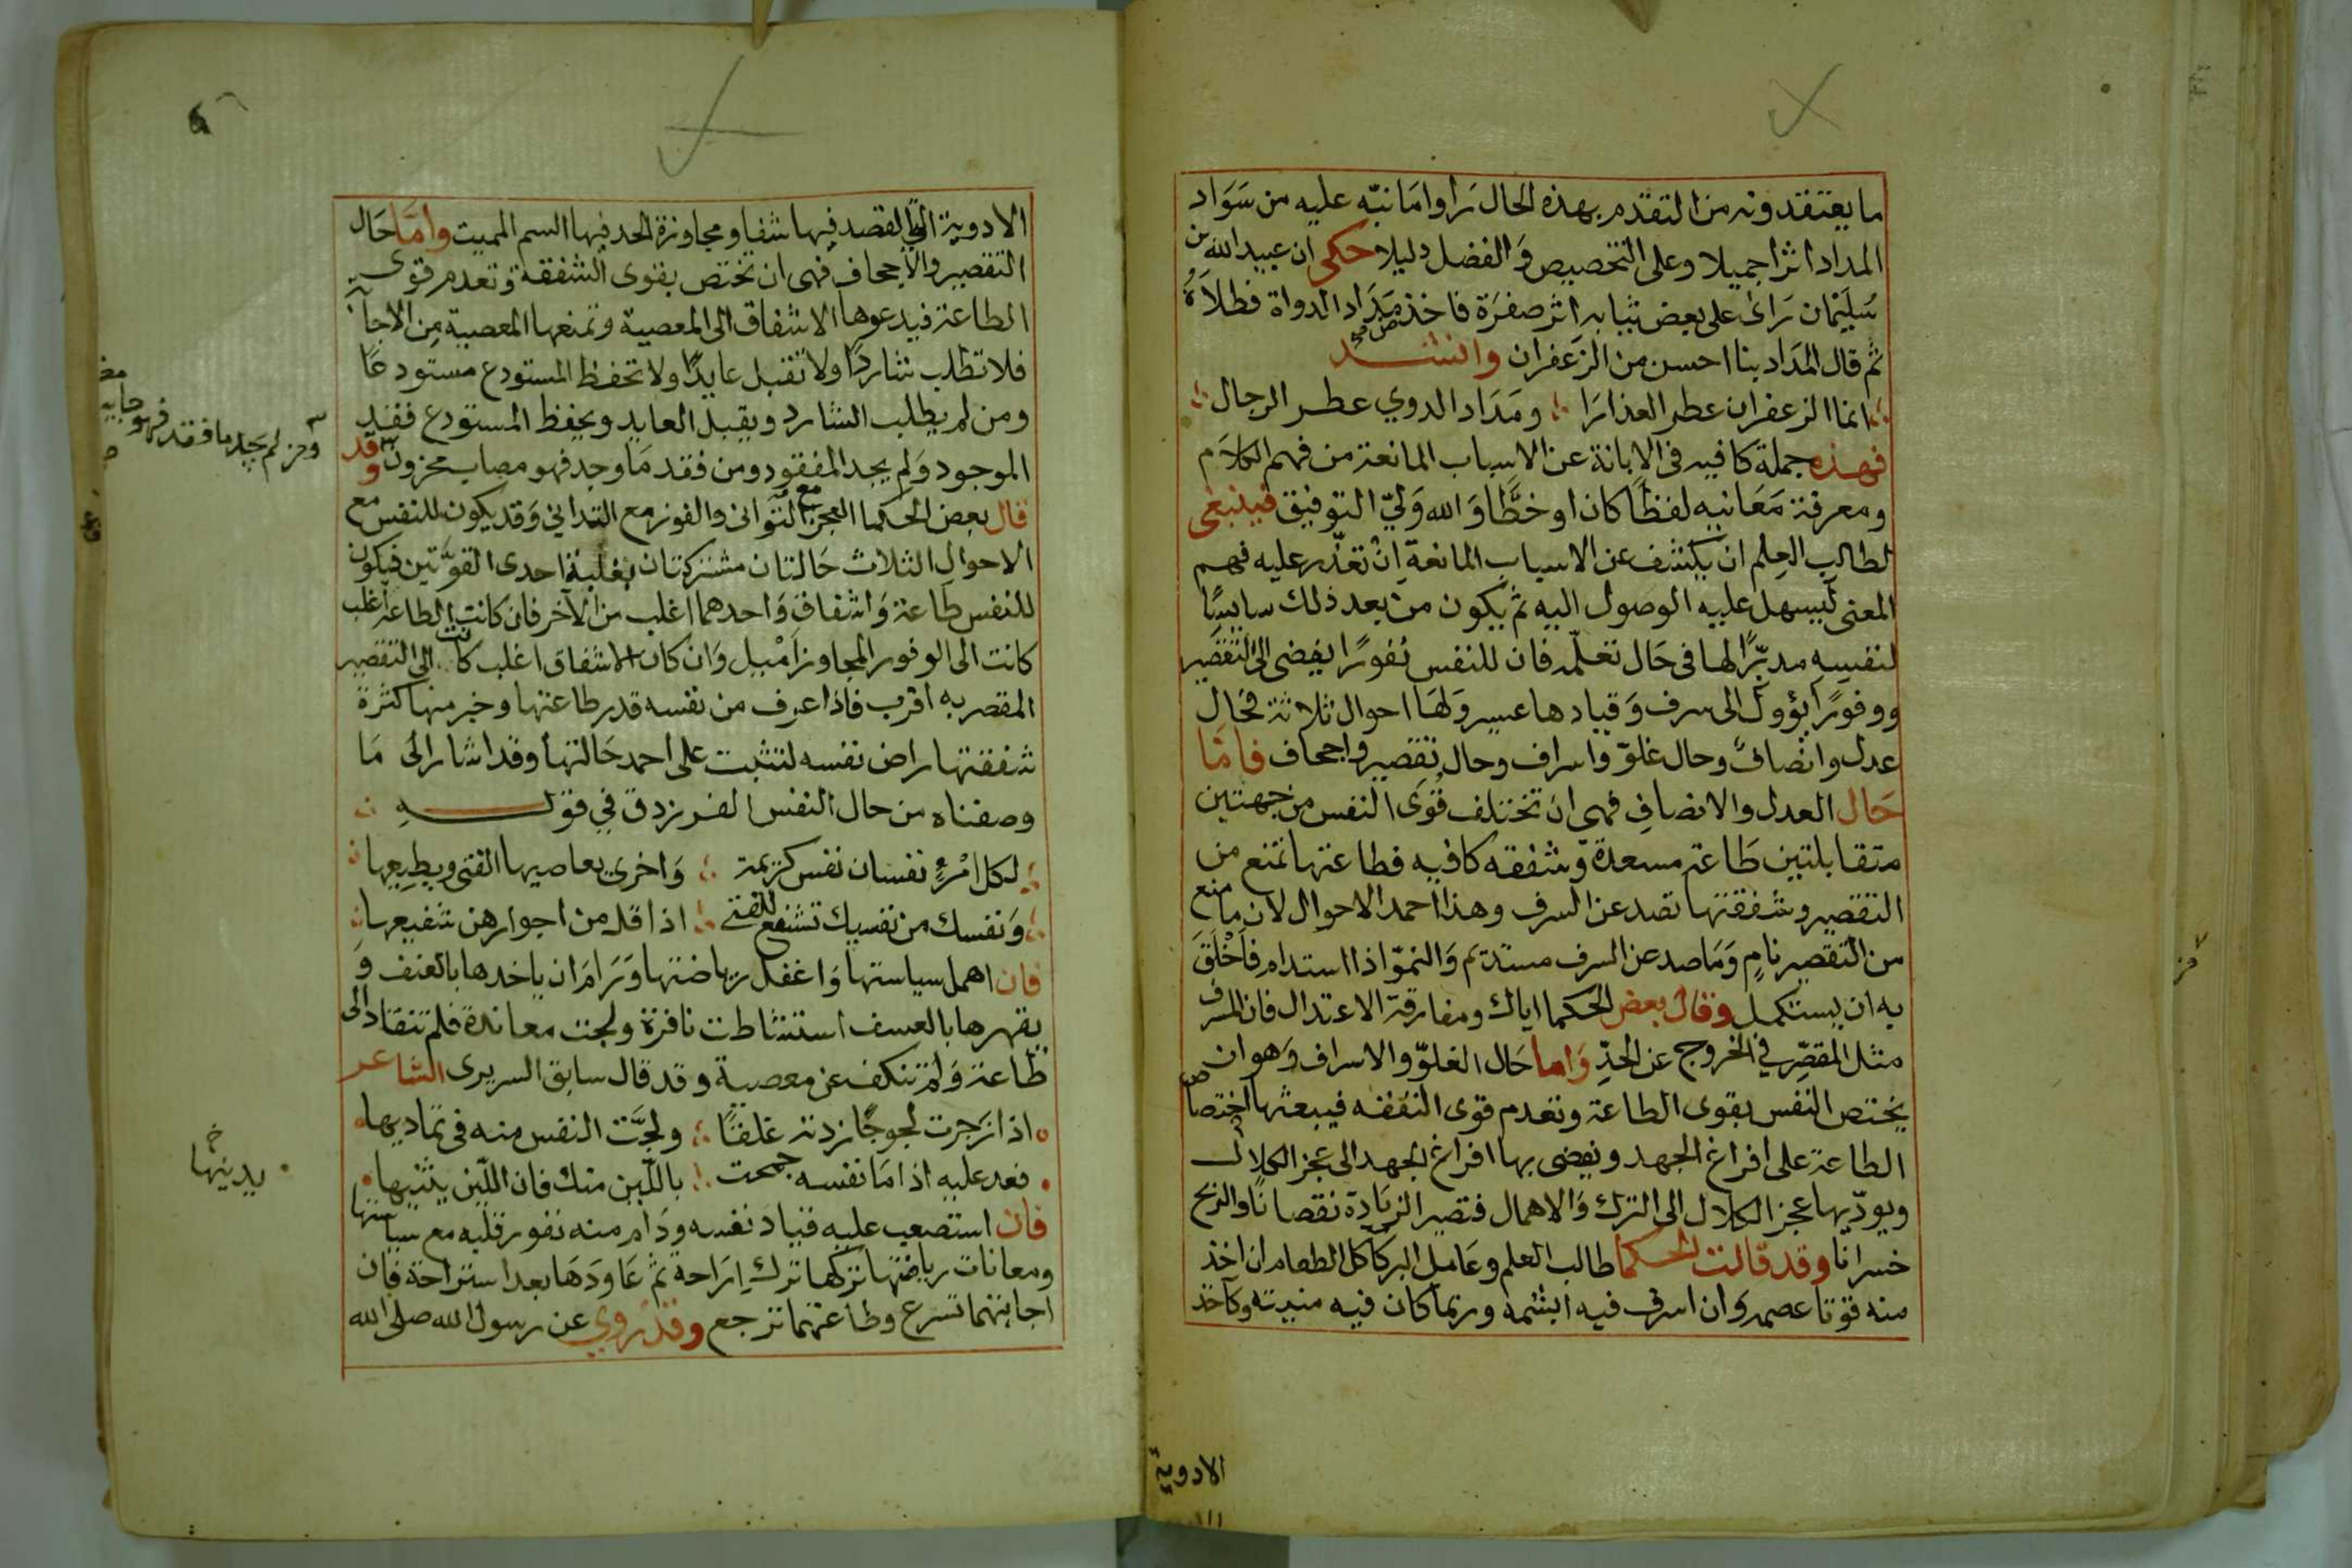 ما يعتقدونه من التقدم بهذه الحال راوا ما نبّه عليه من سَوَاد
المداد اثرا جميلا وعلى التخصيص وَالفضل دليلا حكى ان عبيد الله بن
سُلَيمان رَاى على بعض ثيابه اثر صفرَة فاخذ مَدَاد الدواة فطلاَهُ
ثم قال المدَاد بنا احسن من الزعفران وانشد
انما الزعفران عطر العذارَا ومَدَاد الدوي عطر الرجال
فهذه جملة كافيه في الابانة عن الاسباب المانعة من فهم الكلاَم
ومعرفة مَعَانيه لفظًا كان او خطًّا وَالله وَليّ التوفيق فينبغى
لطالب العِلم ان يكشف عن الاسباب المانعة اِن تعذّر عليه فهم
المعنى لِيسهل عليه الوصول اليه ثم يكون من بعد ذلك سايسًا
لنفسه مدبّرًا لها في حَال تعلّمه فان للنفس نفورًا يفضى الى التقصير
ووفورًا يؤول الى سرف وَقيادها عسير وَلهَا احوال ثلاثة فحَال
عدل وانصاف وحال غلوّ واسراف وحال تقصير واجحاف فامّا
حَال العدل والانصافِ فهى ان تختلف قُوَى النفس من جهتين
متقابلتين طَاعة مسعدة وشفقه كافيه فطاعتها تمنع من
التقصير وشفقتها تصد عن السرف وهذا احمد الاحوال لان ما منع
من التقصير نامٍ وَمَا صد عن السرف مستديم وَالنموّ اذا استدام فاَخْلَقَ
به ان يستكمل وقال بعض الحكما اياك ومفارقة الاعتدال فان المسرف
مثل المقصِّر في الخروج عن الحدِّ وَاما حَال الغلوّ والاسراف وَهو ان
يختص النفس بقوى الطاعة وتعدم قوى الشفقه فيبعثها اختصاص
الطاعة على افراغ الجهد ويفضى بها افراغ الجهد الى عجز الكلال
ويودّيها عجز الكلال الى الترك وَالاهمال فتصير الزيَادة نقصانًا والربح
خسرانا وقد قالت الحكما طالب العلم وعَامل البر كَاكل الطعام ان اخذ
منه قوتا عصمه وان اسرف فيه ابشمه وربما كان فيه منيته وكآخذ
الادوية
الادوية التي القصد فيها شفا ومجاوزة الحد فيها السم المميت وامّا حَال
التقصير والاجحاف فهى ان تختص بقوى الشفقة وتعدم قوى
الطاعة فيدعوها الاشفاق الى المعصية وتمنعها المعصية مِن الاجابة
فلا تطلب شاردًا ولا تقبل عايدًا ولا تحفظ المستودع مستودعًا
ومن لم يطلب الشارد ويقبل العايد ويحفظ المستودع فقد
الموجود وَلم يجد المفقود ومن فقد مَا وجد فهو مصاب محزون وقد
ومن لم يجد ما فقد فهو خايب
قال بعض الحكما العجز مع التَوَانى والفوز مع التدانى وَقد يكون للنفس مع
الاحوال الثلاث حَالتان مشتركتان بغلبة احدى القوَّتين فيكون
للنفس طَاعة وَاشفاق وَاحدهما اغلب من الآخر فان كانت الطاعة اغلب
كانت الى الوفور المجاوز اَمْيل وَان كان الاشفاق اغلب كانت الى التقصير
المقصر به اقرب فاذا عرف من نفسه قدر طاعتها وخبر منها كثرة
شفقتها راض نفسه لتثبت على احمد حَالتها وقد اشار الى مَا
وصفناه من حال النفس الفرزدق في قوله
لكل امْرءٍ نفسان نفس كريمة وَاخرى يعاصيها الفتى ويطِيعها
وَنفسك من نفسيك تشفع للفتى اذا قل من اجوارهن شفيعها
فان اهمل سياستها وَاغفل رياضتها وَرَامَ ان ياخدها بالعنف وَ
يقهرها بالعسف استشاطت نافرة ولجت معاندة فلم تنقاد الى
طَاعة وَلم تنكف عن معصية وقد قال سابق السريرى الشاعر
اذا زَجرت لجوجًا زدته غلقًا ولجّت النفس منه في تماديها
فعد عليه اذا مَا نفسه جمحت باللّين منك فان اللّين يثنيها
يدينها خ
فان استصعب عليه قياد نفسه ودَام منه نفور قلبه مع سياستها
ومعانات رياضتها تركها ترك اِرَاحة ثم عَاودَهَا بعد استراحة فان
اجابتها تسرع وطاعتها ترجع وقد رُوي عن رسول الله صلى الله